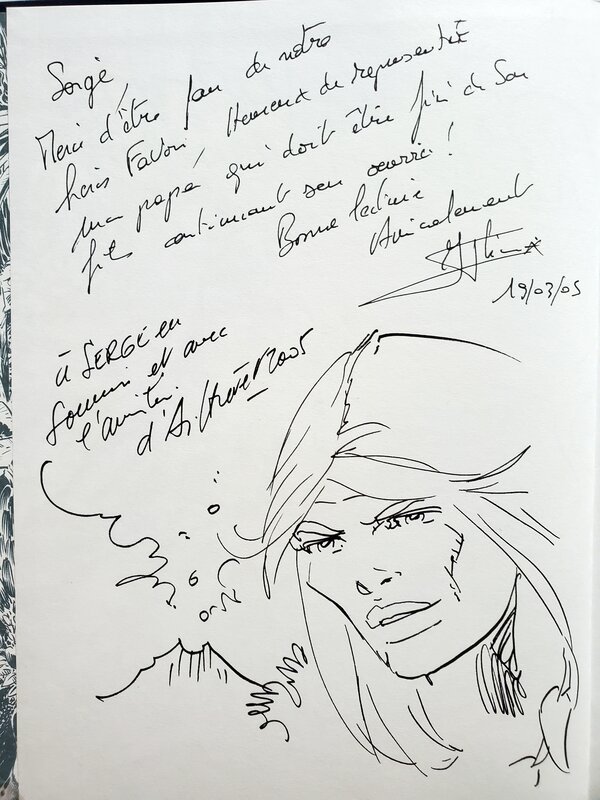 Serge,
Merci d'être fan de notre
héros Favori, Heureux de représenter
mon papa, qui doit être fier de son
fils continuant son œuvre!
Bonne lecture
Amicalement
19/03/05
à SERGE en
souvenir et avec
l'amitié
d' 2005